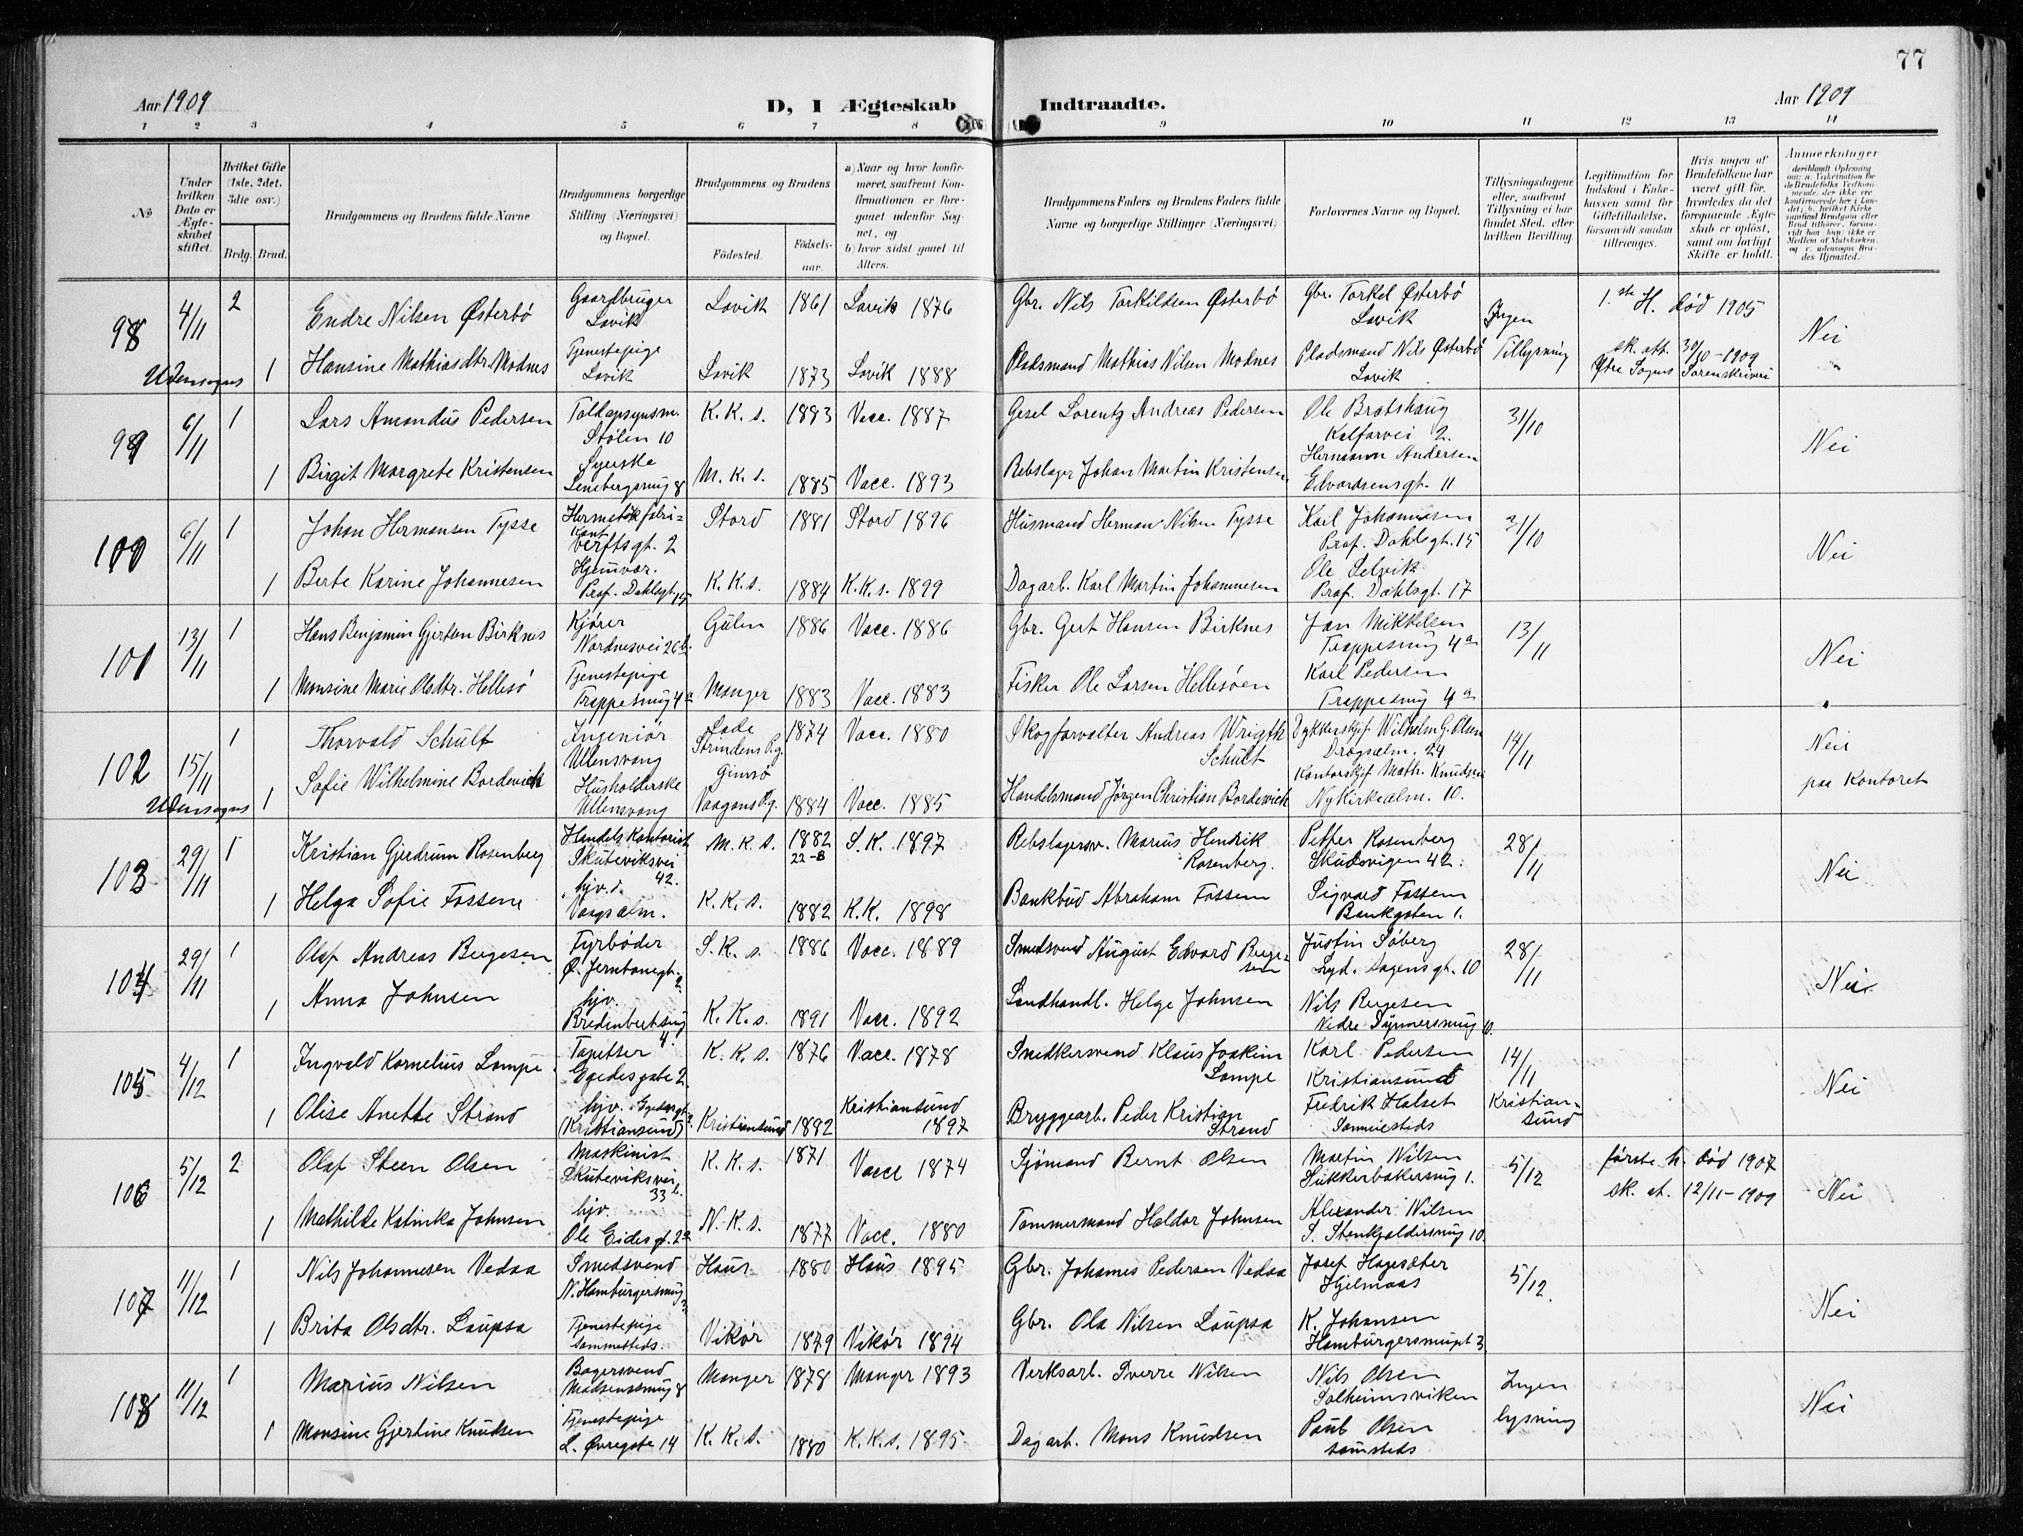 77
Aar 1909
D, I Ægteskab Indtraadte.
Aar 1909
1 2 3 4 5 6 7 8 9 10 11 12 13 14
No
Under hvilken Dato er Ægteskabet stiftet.
Hvilket Gifte (1ste, 2det, 3die osv.)
Brdg. Brud.
Brudgommens og Brudens fulde Navne
Brudgommens borgerlige Stilling (Næringsvei) og Bopæl.
Brudgommens og Brudens
Fødested.
Fødselsaar.
a) Naar og hvor konfirmeret, saafremt Konfirmationen er foregaaet udenfor Sognet, og
b) hvor sidst gaaet til Alters.
Brudgommens Faders og Brudens Faders fulde Navne og borgerlige Stillinger (Næringsvei)
Forlovernes Navne og Bopæl.
Tillysningsdagene eller, saafremt Tillysning ei har fundet Sted, efter hvilken Bevilling.
Legitimation for Indskud i Enkekassen samt for Giftetilladelse, forsaavidt saadan tiltrænges.
Hvis nogen af Brudefolkene har været gift før, hvorledes da det foregaaende Ægteskab er opløst, samt om lovligt Skifte er holdt.
Anmerkninger
98 4/11 2 Endre Nilsen Østerbø Gaardbruger Lavik Lavik 1861 Lavik 1876 Gbr. Nils Torkildsen Østerbø Gbr. Torkel Østerbø Lavik Ingen Tillysning 1.ste H. død 1905 Nei
Udensogns 1 Hansine Mathiasdtr. Modnes Tjenestepige Lavik Lavik 1873 Lavik 1888 Pladsmand Mathias Nilsen Modnes Pladsmand Nils Østerbø Lavik sk. att. 30/10-1909 Ytre Sogns Sorenskriveri
99 6/11 1 Lars Amandus Pedersen Toldopsynsm. Stølen 10 K. K. s. 1883 Vacc. 1887 Gesel Lorentz Andreas Pedersen Ole Bratshaug Kalfarvei 2. 31/10 Nei
1 Birgit Margrete Kristensen Syerske Lembergsmug 8 M. K. s. 1885 Vacc. 1893 Rebslager Johan Martin Kristensen Hermann Andersen Edvardsensgt. 11
100 6/11 1 Johan Hermansen Tysse Hermetikfabrikant Verftsgt. 2 Stord 1881 Stord 1896 Husmand Herman Nilsen Tysse Karl Johannesen Prof. Dahlsgt. 15 31/10 Nei
1 Berte Karine Johannesen Hjemvær. Prof. Dahlsgt. 15 K. K. s. 1884 K. K. s. 1899 Dagarb. Karl Martin Johannesen Ole Selvik Prof. Dahlsgt. 17
101 13/11 1 Hans Benjamin Gjertsen Birknes Kjører Nordnesvei 26 b. Gulen 1886 Vacc. 1886 Gbr. Gert Hansen Birknes Jan Mikkelsen Trappesmug 4 a 13/11 Nei
1 Monsine Marie Olsdtr. Hellesø Tjenestepige Trappesmug 4 a Manger 1883 Vacc. 1883 Fisker Ole Larsen Hellesøen Karl Pedersen Trappesmug 4 a
102 15/11 1 Thorvald Schult Ingeniør Ullensvang Lade Strindens Pg. 1874 Vacc. 1880 Skogforvalter Andreas Wrigth Schult Dykkerskipf Wilhelm G. Olsen Dragsalm. 24 14/11 Nei
Udensogns 1 Sofie Wilhelmine Bordevick Husholderske Ullensvang Gimsø Vaagans Pg. 1884 Vacc. 1885 Handelsmand Jørgen Christian Bordewick Kontorskjef Math. Knudsen Nykirkealm. 10. paa Kontoret
103 29/11 1 Kristian Gjerdrum Rosenberg Handels Kontorist Skuteviksvei 42. M. K. s. 1882 22-8 S. K. 1897 Rebslagersv. Marius Henrik Rosenberg. Petter Rosenberg Skudevigen 42. 28/11 Nei
1 Helga Sofie Fossene hjv. d. Vaagsalm. K. K. s. 1882 K. K. 1898 Bankbud Abraham Fossem Sigvald Fossem Bankgaten 1.
104 29/11 1 Olaf Andreas Bergesen Fyrbøder Ø. Jernbanegt. 2 S. K. s. 1886 Vacc. 1889 Smedsvend August Edvard Bergesen Justin Søberg Lyd. Sagensgt. 10 28/11 Nei
1 Anna Johnsen hjv. Bredenbertsmug 4. K. K. s. 1891 Vacc. 1892 Landhandl. Helge Johnsen Nils Bergesen Nedre Synnersmug 10.
105 4/12 1 Ingvald Kornelius Lampe Tapitser Egedesgate 2 K. K. s. 1876 Vacc. 1878 Snedkersvend Klaus Joakim Lampe Karl Pedersen Kristiansund 14/11 Kristiansund Nei
1 Olise Anette Strand hjv. Egedesgt. 2 (Kristiansund) Kristiansund 1892 Kristiansund 1897 Bryggearb. Peder Kristian Strand Fredrik Halset Sammesteds
106 5/12 2 Olaf Steen Olsen Maskinist Skuteviksvei 33 b. K. K. s. 1871 Vacc 1874 Sjømand Bernt Olsen Martin Nilsen Sukkerbakersmug 1. 5/12 første h. død 1907 Nei
1 Mathilde Katinka Johnsen hjv. Ole Eidesgt. 2 a N. K. s. 1877 Vacc. 1880 Tømmermand Haldor Johnsen Alexander Nilsen S. Stenkjeldersmug 10 sk. at. 12/11-1909
107 11/12 1 Nils Johannesen Vedaa Smedsvend N. Hamburgersmug 3 Haus 1880 Haus 1895 Gbr. Johannes Pedersen Vedaa Josef Hagesæter Hjelmaas 5/12. Nei
1 Brita Olsdtr. Laupsa Tjenestepige sammesteds. Vikør 1879 Vikør 1894 Gbr. Ola Nilsen Laupsa K. Johansen Hamburgersmuget 3
108 11/12 1 Marius Nilsen Bagersvend Madsenssmug 8 Manger 1878 Manger 1893 Verksarb. Sverre Nilsen Nils Olsen Solheimsviken Ingen lysning Nei
1 Monsine Gjertine Knudsen Tjenestepige L. Øvregate 14 K. K. s. 1880 K. K. s. 1895 Dagarb. Mons Knudsen Paul Olsen samsteds